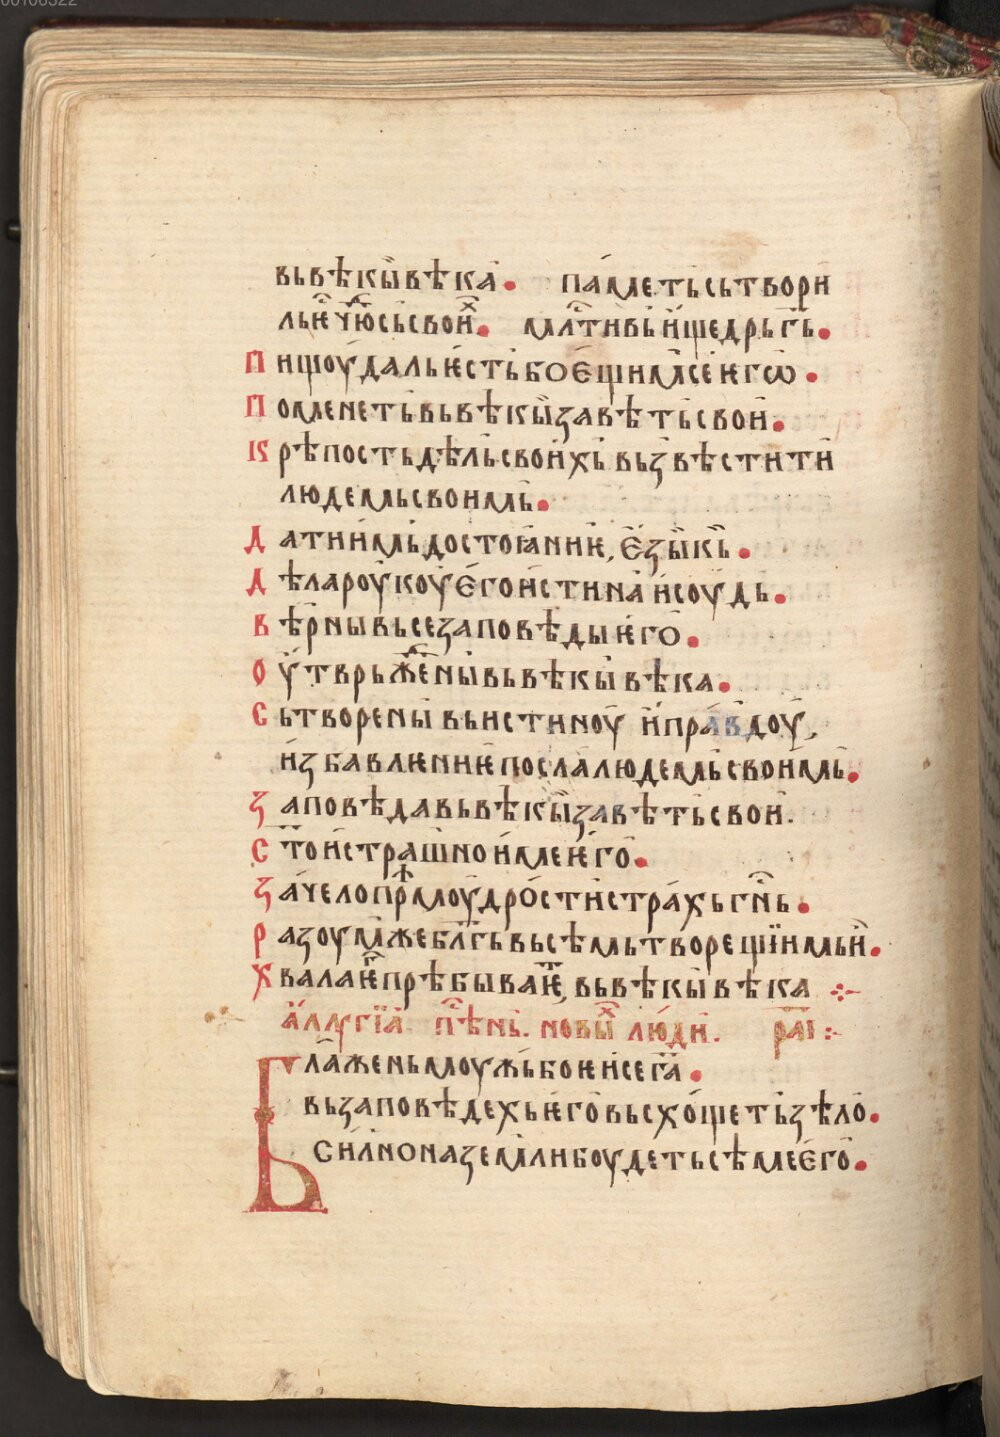 00108322
вьвѣкы̀вѣка̀. па́метьсьтвори̏
льѥ҆чю҆ⷣсьсвои҆ⷯ. млⷭ҇тивьи҆щедрьгь҃.
Пищоу҆дальѥ҆стьбое҆щимсеѥгѡ҆.
Поменетьвьвѣкы̀завѣтьсвои.
Крѣпостьдѣльсвоихьвьзвѣстити
людемьсвоимь.
Датиимьдостоꙗниѥ, е҆зы̏кь.
Дѣлароу҆коу҆е҆гои҆стинаи҆соу҆дь.
Вѣрнывьсезаповѣдыѥ҆го.
Оу҆тврьжⷣе҆нывьвѣкывѣка.
Сьтворенывьистиноу҆ и҆пра́вдоу҆,
и҆збавлѥниѥпослалюдемьсвоимь.
Заповѣдавьвѣкызавѣтьсвои.
Ст҃ои҆страшноимеѥ҆го.
За́челопрѣⷨмоу҆дростистра́хьгн҃ь.
Разоумжеблг҃ьвьсѣмьтворещїимьи҆.
Хвалаѥ҆гⷪпрѣбываѥⷮ, вьвѣкывѣка
а҆ллугїа҆ пⷭ҇ѣнь. новыⷯ люди. ра҃і
Бла҃женьмоужьбоѥисега҃.
вьзаповѣдехьѥговьсхо́щетьзѣло.
си́лноназемлибоудетьсѣмеѥ҆го.